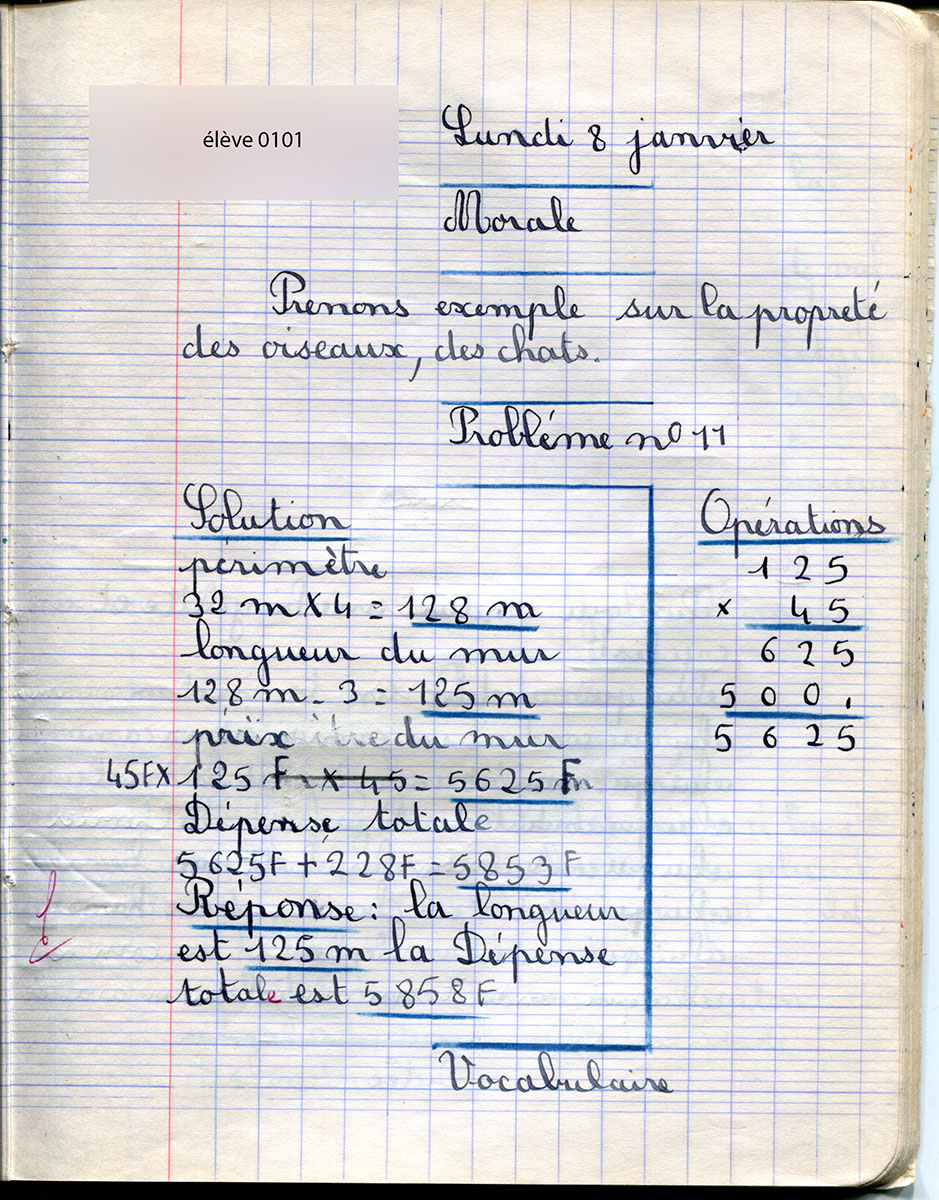 élève 0101
Lundi 8 janvier
Morale
Prenons exemple sur la propreté
des oiseaux, des chats.
Probléme nº 11
Solution
périmètre
32 m X 4 = 128 m
longueur du mur
128 m - 3 = 125 m
prix du mur
45FX 125 F X 45 = 5625 F
Dépense totale
5625F + 228F = 5853 F
Réponse : la longueur
est 125 m la Dépense
totale est 5858F
Opérations
125
x 45
625
500.
5625
Vocabulaire